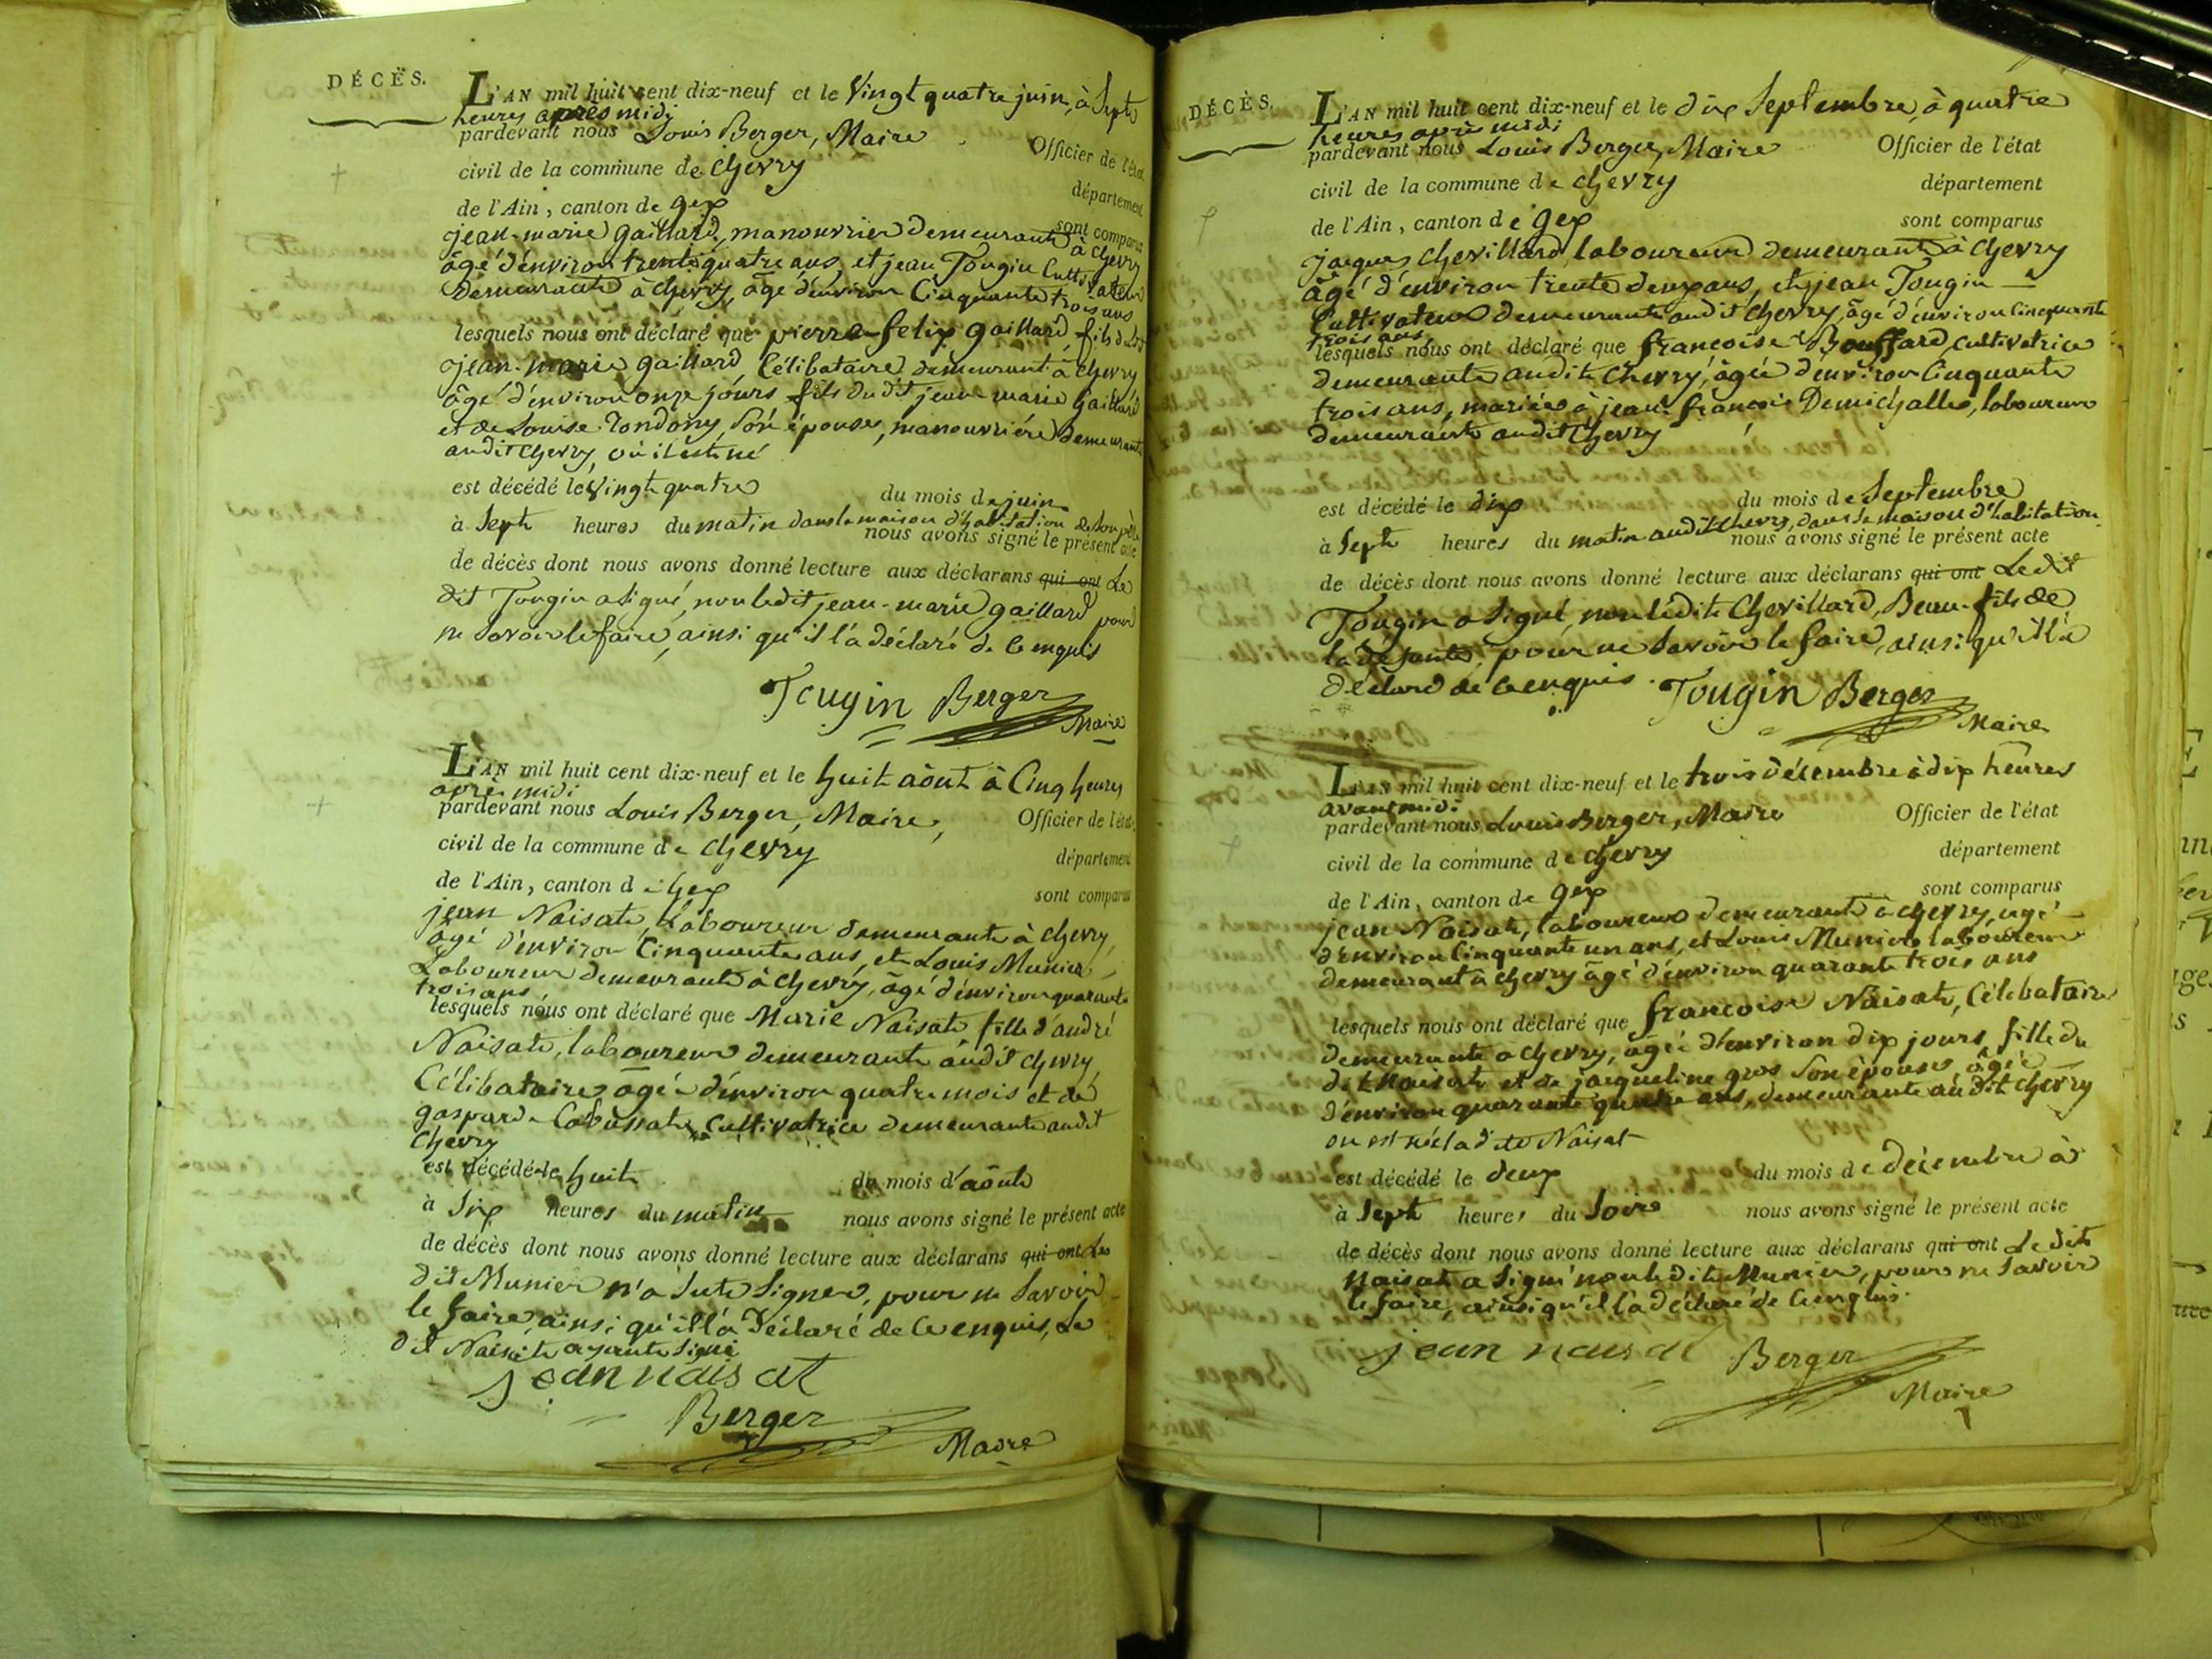 DÉCÈS.
L'AN mil huit cent dix-neuf et le Vingt quatre juin, à Sept
heures après midi
pardevant nous Louis Berger, Maire Officier de l'état
civil de la commune de Chevry département
de l'Ain, canton de gex sont comparus
jean-marie gaillard, manouvrier demeurant à Chevry
âgé d'environ trente quatre ans, et jean Tougin Cultivateur
demeurant à Chevry, âgé d'environ Cinquante trois ans
lesquels nous ont déclaré que pierre felix gaillard, fils dudit
jean-marie gaillard, Célibataire demeurant à Chevry
âgé d'environ onze jours fils dudit jean-marie gaillard
et de Louise Tondony, son épouse, manouvrière demeurant
audit Chevry, où il est né
est décédé le Vingt quatre du mois de juin
à Sept heures du matin dans la maison d'habitation de son père
nous avons signé le présent acte
de décès dont nous avons donné lecture aux déclarans qui ont Le
dit Tougin a signé, non ledit jean-marie gaillard pour
ne savoir le faire, ainsi qu'il l'a déclaré de ce enquis
Tougin Berger
Maire
L'AN mil huit cent dix-neuf et le huit aôut à Cinq heures
après midi
pardevant nous Louis Berger, Maire, Officier de l'état
civil de la commune de Chevry département
de l'Ain, canton de gex sont comparus
jean Naisat, Laboureur demeurant à Chevry,
âgé d'environ Cinquante ans, et Louis Munier,
Laboureur demeurant à Chevry, âgé d'environ quarante
trois ans,
lesquels nous ont déclaré que Marie Naisat fille d'andré
Naisat, laboureur demeurant audit Chevry,
Célibataire, âgée d'environ quatre mois et de
gasparde Cabussat, Cultivatrice demeurant audit
Chevry
est décédé le huit du mois d'aôut
à Six heures du matin nous avons signé le présent acte
de décès dont nous avons donné lecture aux déclarans qui ont Le
dit Munier n'a sut signer, pour ne savoir
le faire, ainsi qu'il l'a déclaré de ce enquis, Le
dit Naisat ayant signé
jean naisat
Berger
Maire
DÉCÈS.
L'AN mil huit cent dix-neuf et le dix Septembre, à quatre
heures après midi
pardevant nous Louis Berger, Maire Officier de l'état
civil de la commune de Chevry département
de l'Ain, canton de gex sont comparus
jacques Chevillard, laboureur demeurant à Chevry
âgé d'environ trente deux ans, et jean Tougin
Cultivateur demeurant audit Chevry, âgé d'environ Cinquante
trois ans,
lesquels nous ont déclaré que francoise Bouffard, cultivatrice
demeurante audit Chevry, âgée d'environ Cinquante
trois ans, mariée à jean-françois Demichalle, laboureur
demeurant audit Chevry
est décédé le dix du mois de Septembre
à Sept heures du matin audit Chevry, dans sa maison d'habitation
nous avons signé le présent acte
de décès dont nous avons donné lecture aux déclarans qui ont Ledit
Tougin a signé, non ledit Chevillard, Beau-fils de
la défunte, pour ne savoir le faire, ainsi qu'il l'a
déclaré de ce enquis. Tougin Berger
Maire
L'AN mil huit cent dix-neuf et le trois décembre à dix heures
avant midi
pardevant nous Louis Berger, Maire Officier de l'état
civil de la commune de Chevry département
de l'Ain, canton de gex sont comparus
jean Naisat, laboureur demeurant à Chevry, âgé
d'environ Cinquante un ans, et Louis Munier laboureur
demeurant à Chevry âgé d'environ quarante trois ans
lesquels nous ont déclaré que francoise Naisat, Célibataire
demeurante à Chevry, âgée d'environ dix jours, fille du
dit Naisat et de jacqueline gros son épouse, âgée
d'environ quarante quatre ans, demeurante audit Chevry
ou est née la dite Naisat
est décédé le deux du mois de décembre à
à Sept heures du Soir nous avons signé le présent acte
de décès dont nous avons donné lecture aux déclarans qui ont Le dit
Naisat a signé non ledit Munier, pour ne savoir
le faire, ainsi qu'il l'a déclaré de ce enquis.
jean naisat Berger
Maire